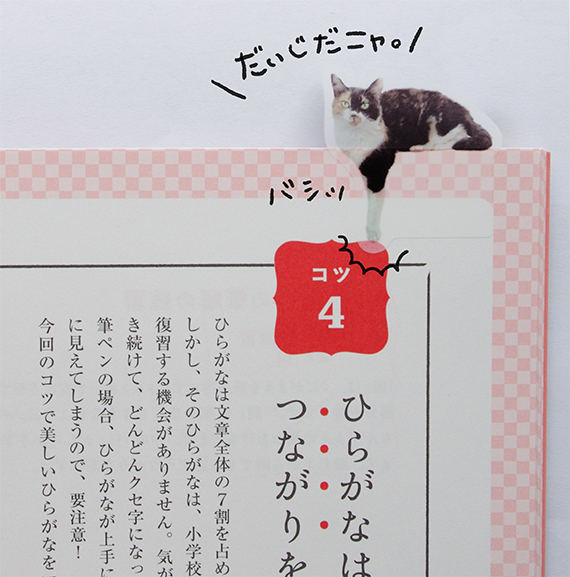 だいじだニャ。
バシッ
コツ
4
ひらがなは
つながりを
ひらがなは文章全体の7割を占め
しかし、そのひらがなは、小学校
復習する機会がありません。気が
き続けて、どんどんクセ字になっ
筆ペンの場合、ひらがなが上手に
に見えてしまうので、要注意！
今回のコツで美しいひらがなを